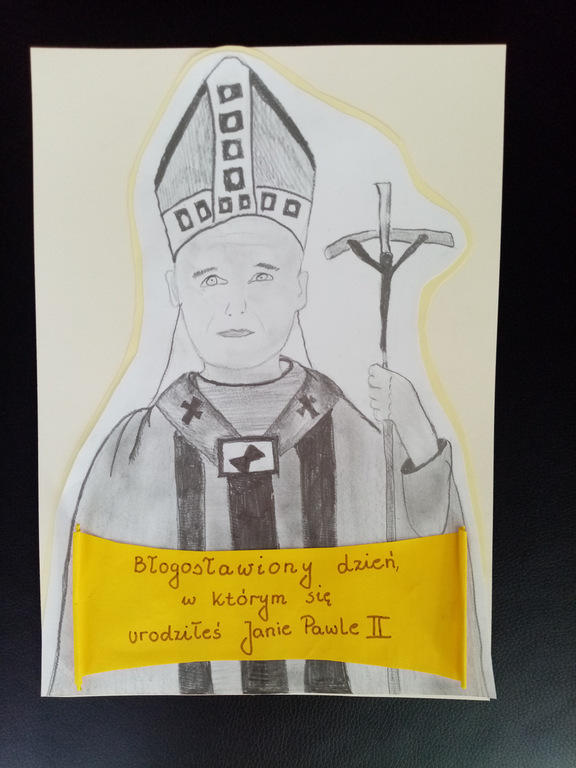 Błogosławiony dzień,
w którym się
urodziłeś Janie Pawle II